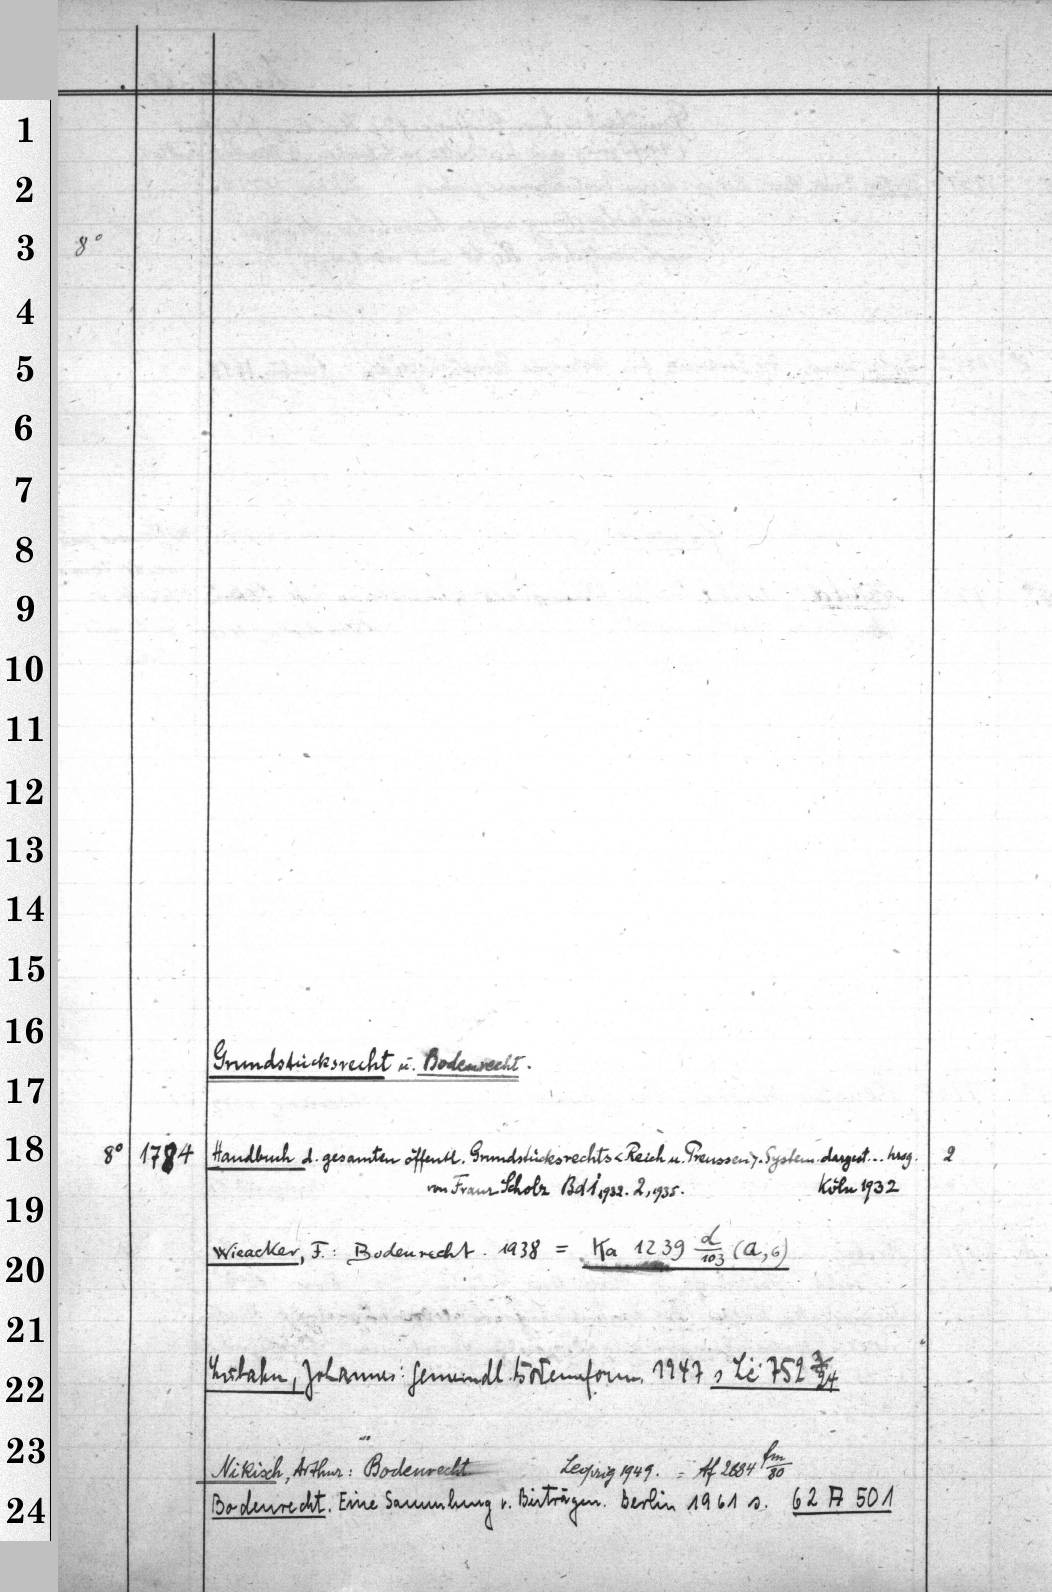 1
2
3
8°
4
5
6
7
8
9
10
11
12
13
14
15
16
Grundstücksrecht u. Bodenrecht.
17
18
8° 1784 Handbuch d. gesamten öffentl. Grundstücksrechts <Reich u. Preussen>. System. dargest... hrsg. 2
von Franz Scholz Bd 1, 1932. 2, 1935. Köln 1932
19
Wieacker, F.: Bodenrecht. 1938 = Ka 1239 d/103 (a,6)
20
21
Johannes: Gemeindl. 1947 s 752
22
23
Nikisch, Arthur: Bodenrecht Leipzig 1949. = Af 2684 fm/80
24
Bodenrecht. Eine Sammlung v. Beiträgen. Berlin 1961 s. 62 A 501